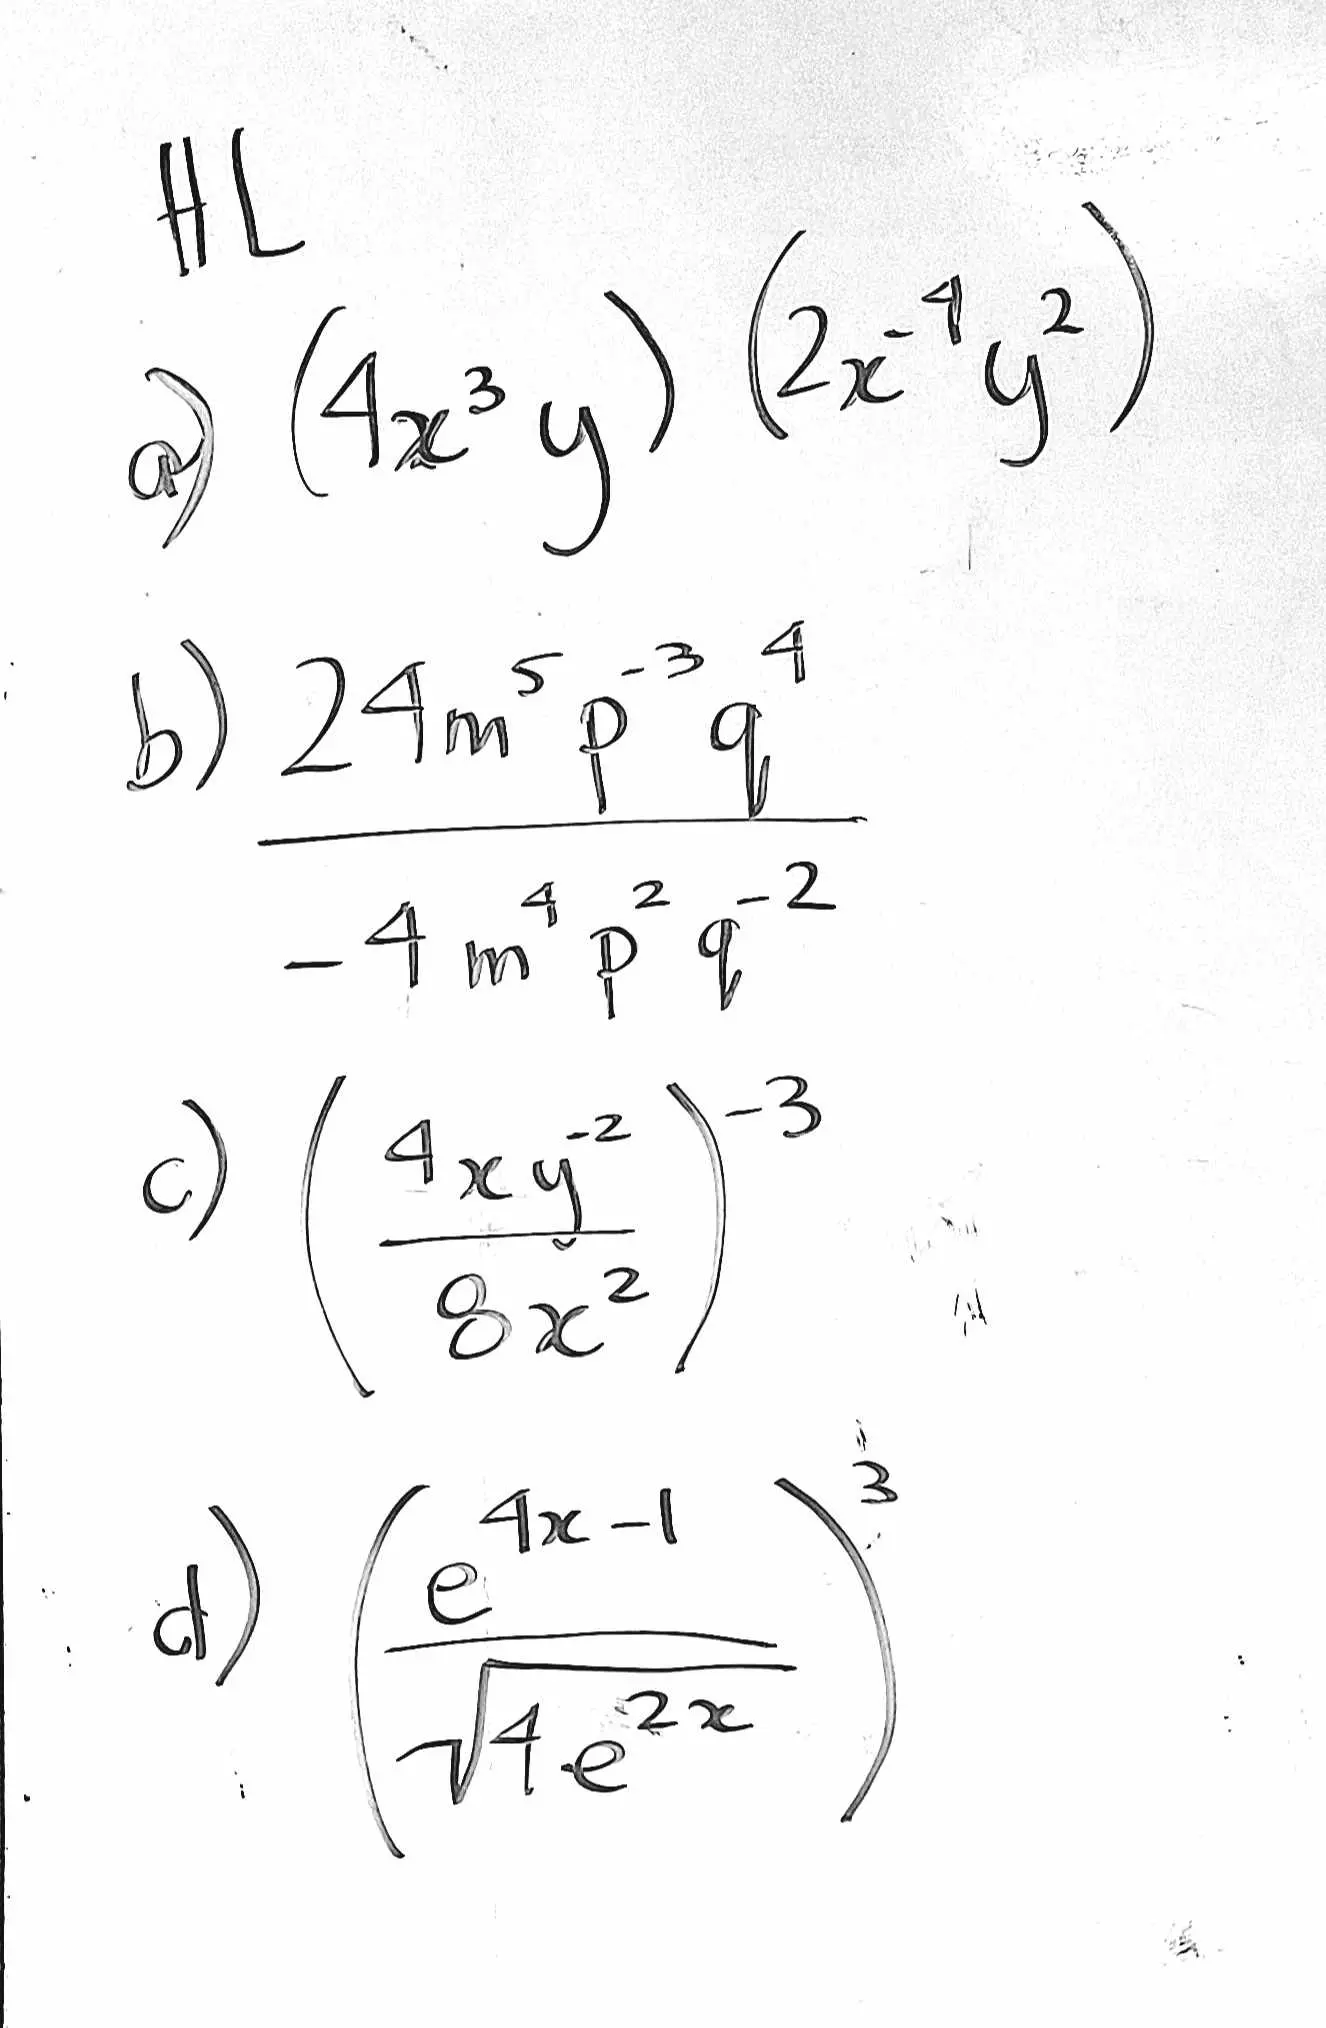 HL
a) (4x³y) (2x⁻⁴y²)
b) 24m⁵p⁻³q⁴
-4m⁴p²q⁻²
c) (4xy⁻²
8x²)⁻³
d) (e⁴ˣ⁻¹
√4e²ˣ)³